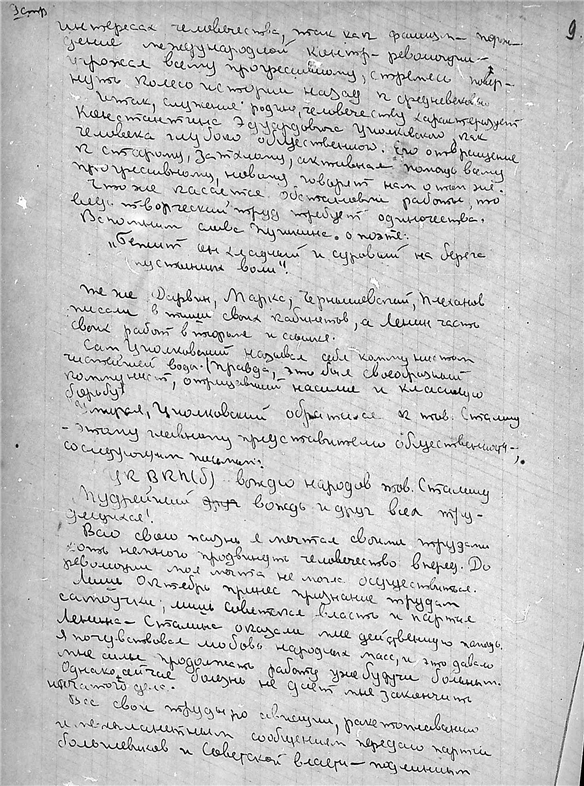 9.
интересах человечества, так как фашизм – порож-
дение международной контр-революции –
угрожал всему прогрессивному, стремясь повер-
нуть колесо истории назад к средневековью
Итак, служение родине, человечеству характеризует
Константина Эдуардовича Циолковского как
человека глубоко общественного. Его отвращение
к старому, затхлому, активная помощь всему
прогрессивному, новому говорят нам о том же.
Что же касается обстановки работы, то
ведь творческий труд требует одиночества.
Вспомним слова Пушкина о поэте:
„Бежит он хладный и суровый на берега
пустынных волн".
Те же Дарвин, Маркс, Чернышевский, Плеханов
писали в тиши своих кабинетов, а Ленин часть
своих работ в тюрьме и ссылке.
Сам Циолковский называл себя коммунистом
чистейшей воды. (Правда, это был своеобразный
коммунист, отрицавший насилие и классовую
борьбу)
Умирая, Циолковский обратился к тов. Сталину
– этому главному представителю общественности –,
со следующим письмом:
ЦК ВКП(б) вождю народов тов. Сталину
Мудрейший вождь и друг всех тру-
дящихся!
Всю свою жизнь я мечтал своими трудами
хоть немного продвинуть человечество вперед. До
революции моя мечта не могла осуществиться.
Лишь Октябрь принес признание трудам
самоучки; лишь советская власть и партия
Ленина – Сталина оказали мне действенную помощь.
Я почувствовал любовь народных масс, и это давало
мне силы продолжать работу уже будучи больным.
Однако, сейчас болезнь не дает мне закончить
начатого дела.
Все свои труды по авиации, ракетоплаванию
и межпланетным сообщениям передаю партии
большевиков и Советской власти – подлинным